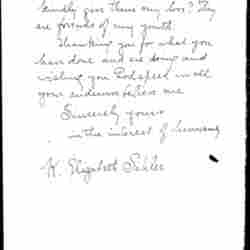 kindly give them my love? They
are friends of my youth.
Thanking you for what you
have done and are doing and
wishing you Godspeed in all
your endeavors believe me
Sincerely yours
in the interest of humanity
K. Elizabeth